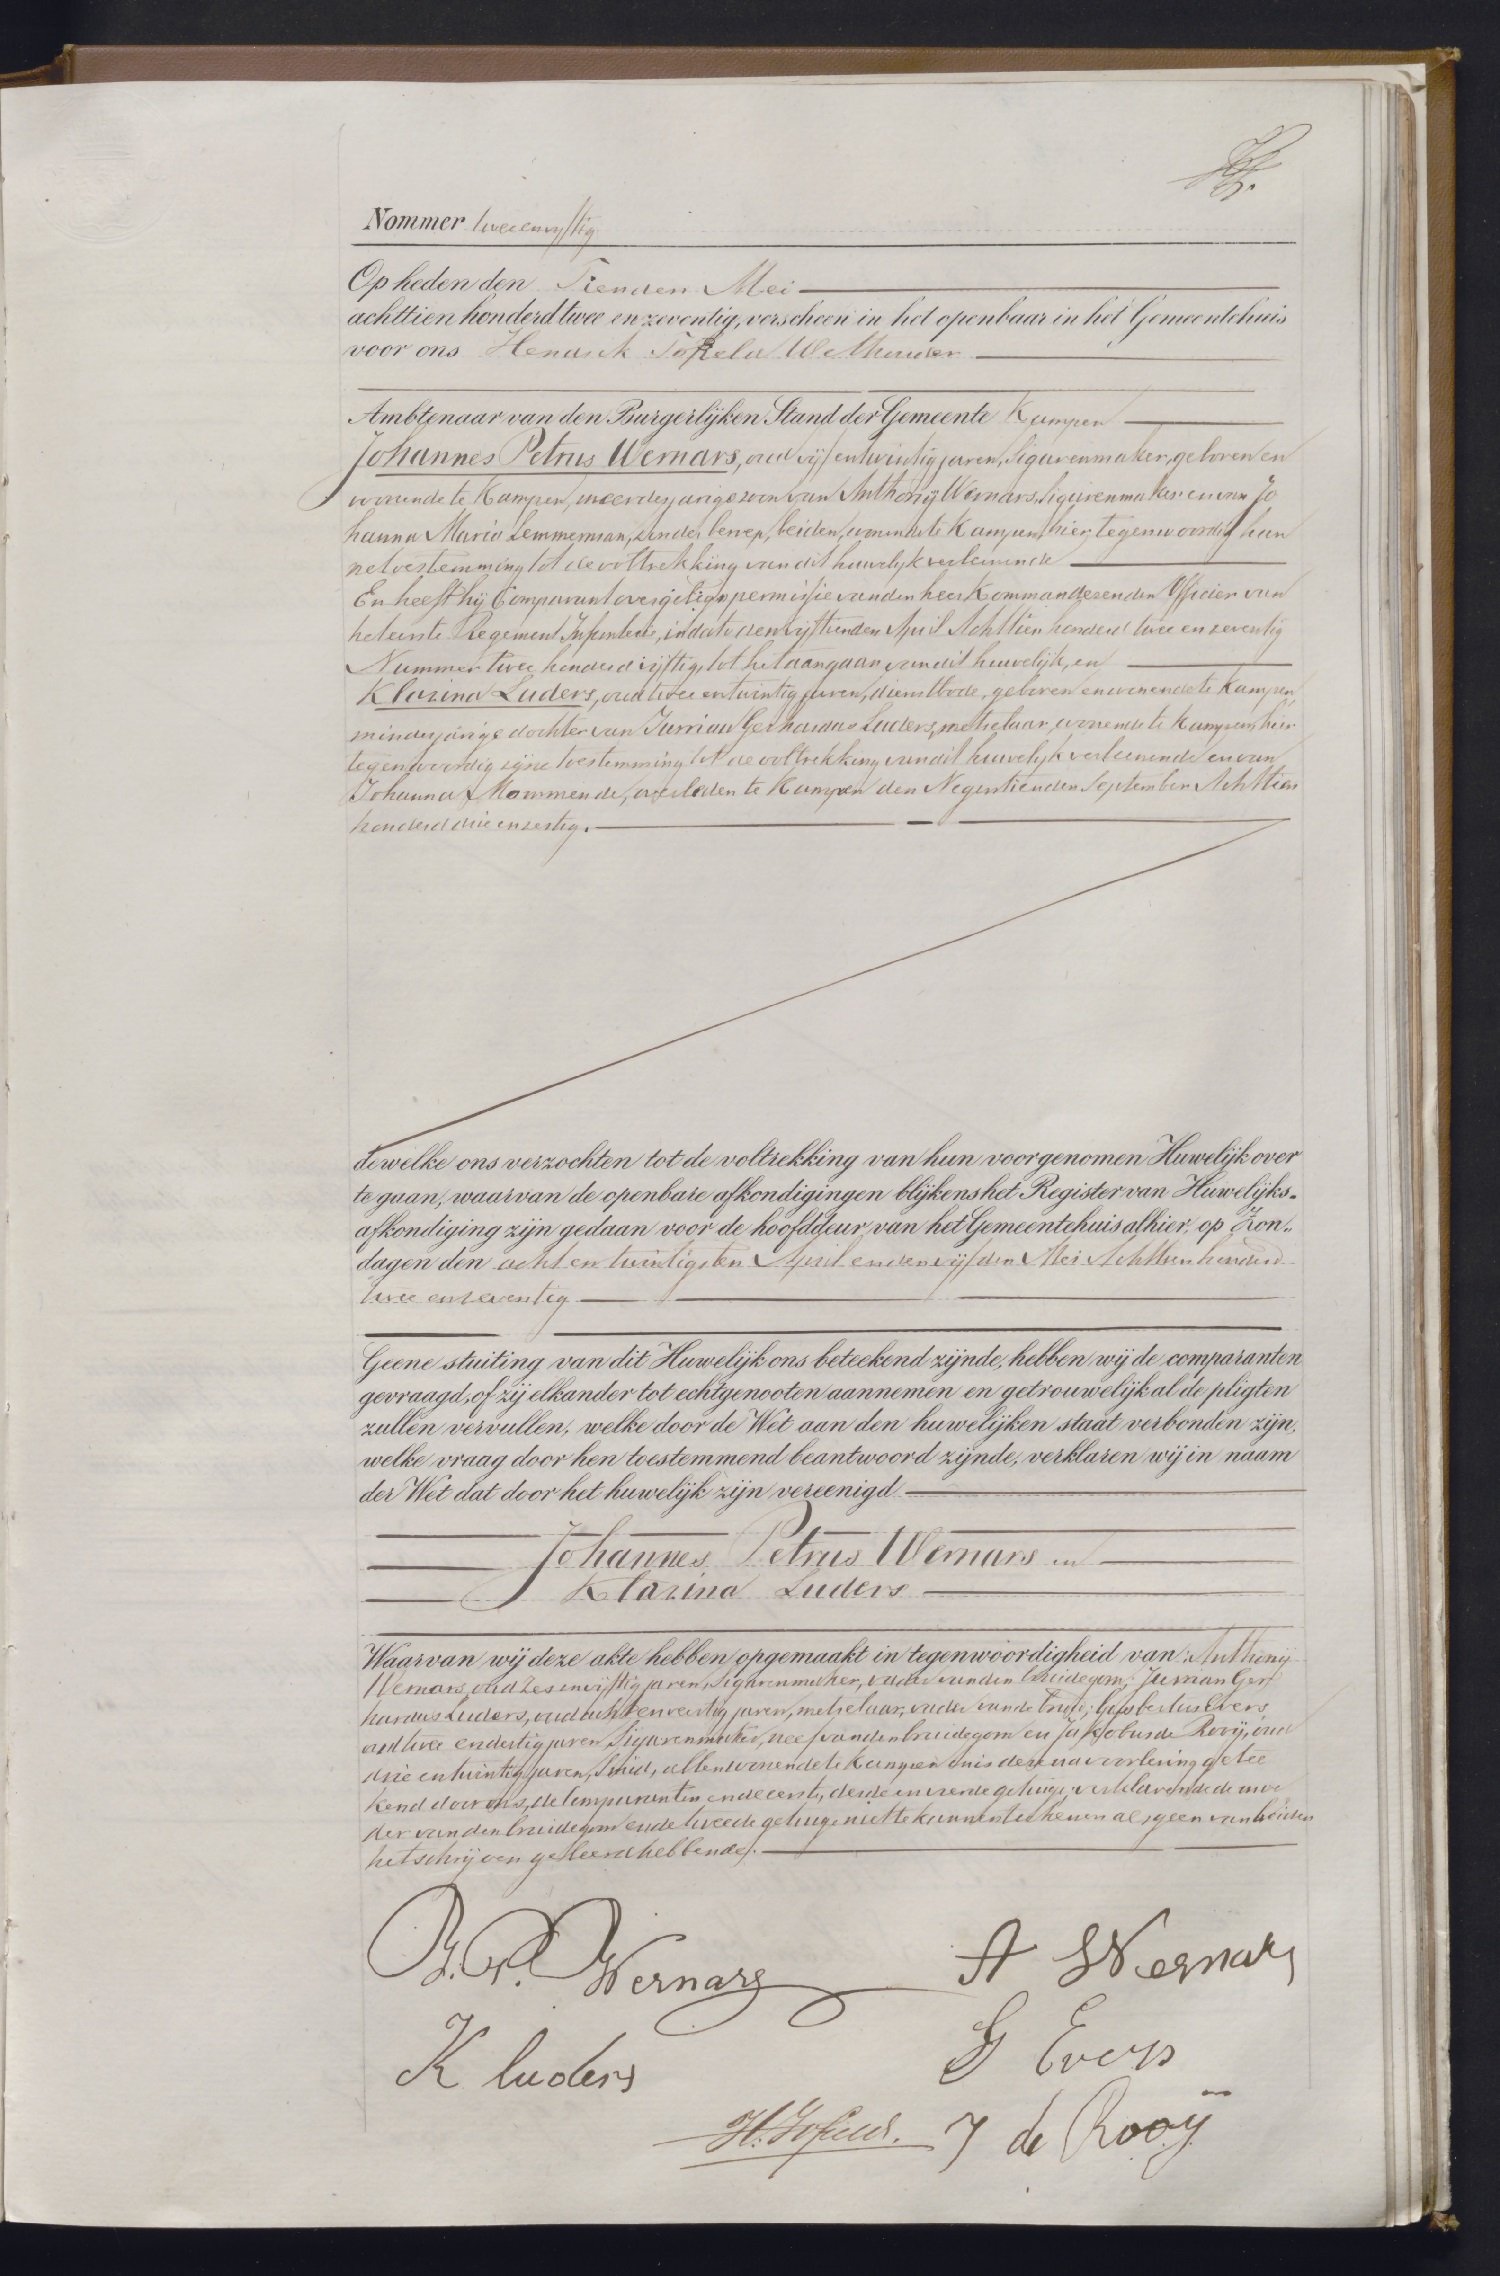 Nommer tweeenvijftig
Op heden den Tienden Mei
achttien honderd twee en zeventig, verscheen in het openbaar in het Gemeentehuis
voor ons Hendrik Wethouder
Ambtenaar van den Burgerlijken Stand der Gemeente Kampen
Johannes Petrus Wernars, oud vijf entwintig jaren, Sigarenmaker, geboren en
wonende te Kampen, meerderjarige zoon van Anthonij Wernars, Sigarenmaker en van Jo
hanna Maria Lemmerman, zonder beroep, beiden wonende te Kampen, hier tegenwoordig hun
ne toestemming tot de voltrekking van dit huwelijk verleenende
En heeft hij Comparant overgelegd permissie van den heer Kommanderenden Officier van
het eerste Regement Infanterie, in dato den vijftienden April Achttien honderd twee en zeventig
Nummer twee honderd vijftig, tot het aangaan van dit huwelijk, en
Klazina Luders, oud twee en twintig jaren, dienstbode, geboren en wonende te Kampen,
minderjarige dochter van Jurrian Gerhardus Luders, metselaar, wonende te Kampen, hier
tegenwoordig zijne toestemming tot de voltrekking van dit huwelijk verleenende en van
Johanna Mommende, overleden te Kampen den Negentienden September Achttien
honderd drie en zestig.
dewelke ons verzochten tot de voltrekking van hun voorgenomen Huwelijk over
te gaan, waarvan de openbare afkondigingen blijkens het Register van Huwelijks-
afkondiging zijn gedaan voor de hoofddeur van het Gemeentehuis alhier, op Zon-
dagen den acht en twintigsten April en den vijfden Mei Achttien honderd
twee en zeventig
Geene stuiting van dit Huwelijk ons beteekend zijnde, hebben wij de comparanten
gevraagd, of zij elkander tot echtgenooten aannemen en getrouwelijk al de pligten
zullen vervullen, welke door de Wet aan den huwelijken staat verbonden zijn,
welke vraag door hen toestemmend beantwoord zijnde, verklaren wij in naam
der Wet dat door het huwelijk zijn vereenigd
Johannes Petrus Wernars en
Klazina Luders
Waarvan wij deze akte hebben opgemaakt in tegenwoordigheid van Anthonij
Wernars, oud Zes en vijftig jaren, Sigarenmaker, vader van den bruidegom; Jurrian Ger
hardus Luders, oud acht en veertig jaren, metselaar, vader van de bruid; Gijsbertus Evers
oud twee en dertig jaren, Sigarenmaker, neef van den bruidegom en Jakobus de Rooij, oud
drie en twintig jaren, Smid, allen wonende te Kampen en is deze na voorlezing getee
kend door ons, de Comparanten en de eerste, derde en vierde getuige, verklarende de moe
der van den bruidegom en de tweede getuige niet te kunnen teekenen als geen van beiden
het schrijven geleerd hebbende.
J. P. Wernars A Wernars
K luders G Evers
J de Rooij